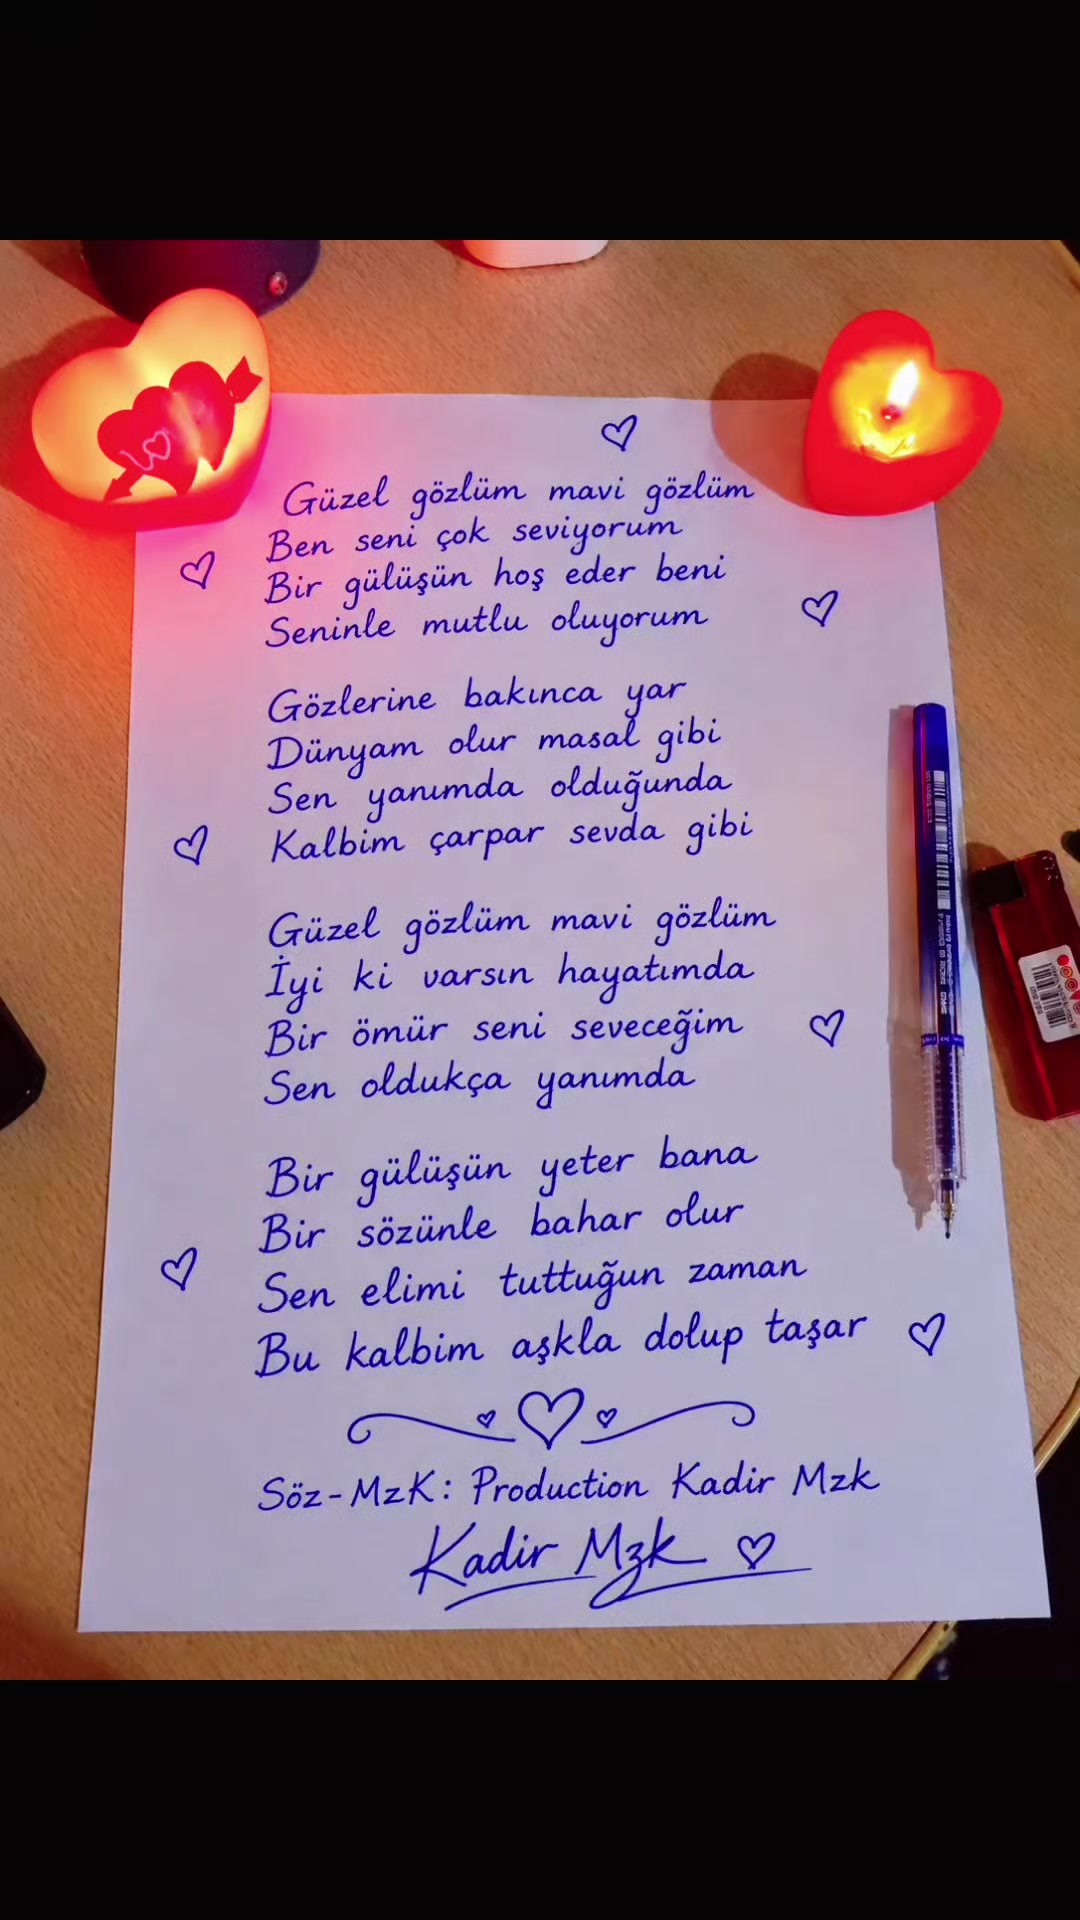 Güzel gözlüm mavi gözlüm
Ben seni çok seviyorum
Bir gülüşün hoş eder beni
Seninle mutlu oluyorum
Gözlerine bakınca yar
Dünyam olur masal gibi
Sen yanımda olduğunda
Kalbim çarpar sevda gibi
Güzel gözlüm mavi gözlüm
İyi ki varsın hayatımda
Bir ömür seni seveceğim
Sen oldukça yanımda
Bir gülüşün yeter bana
Bir sözünle bahar olur
Sen elimi tuttuğun zaman
Bu kalbim aşkla dolup taşar
Söz-MzK: Production Kadir Mzk
Kadir Mzk